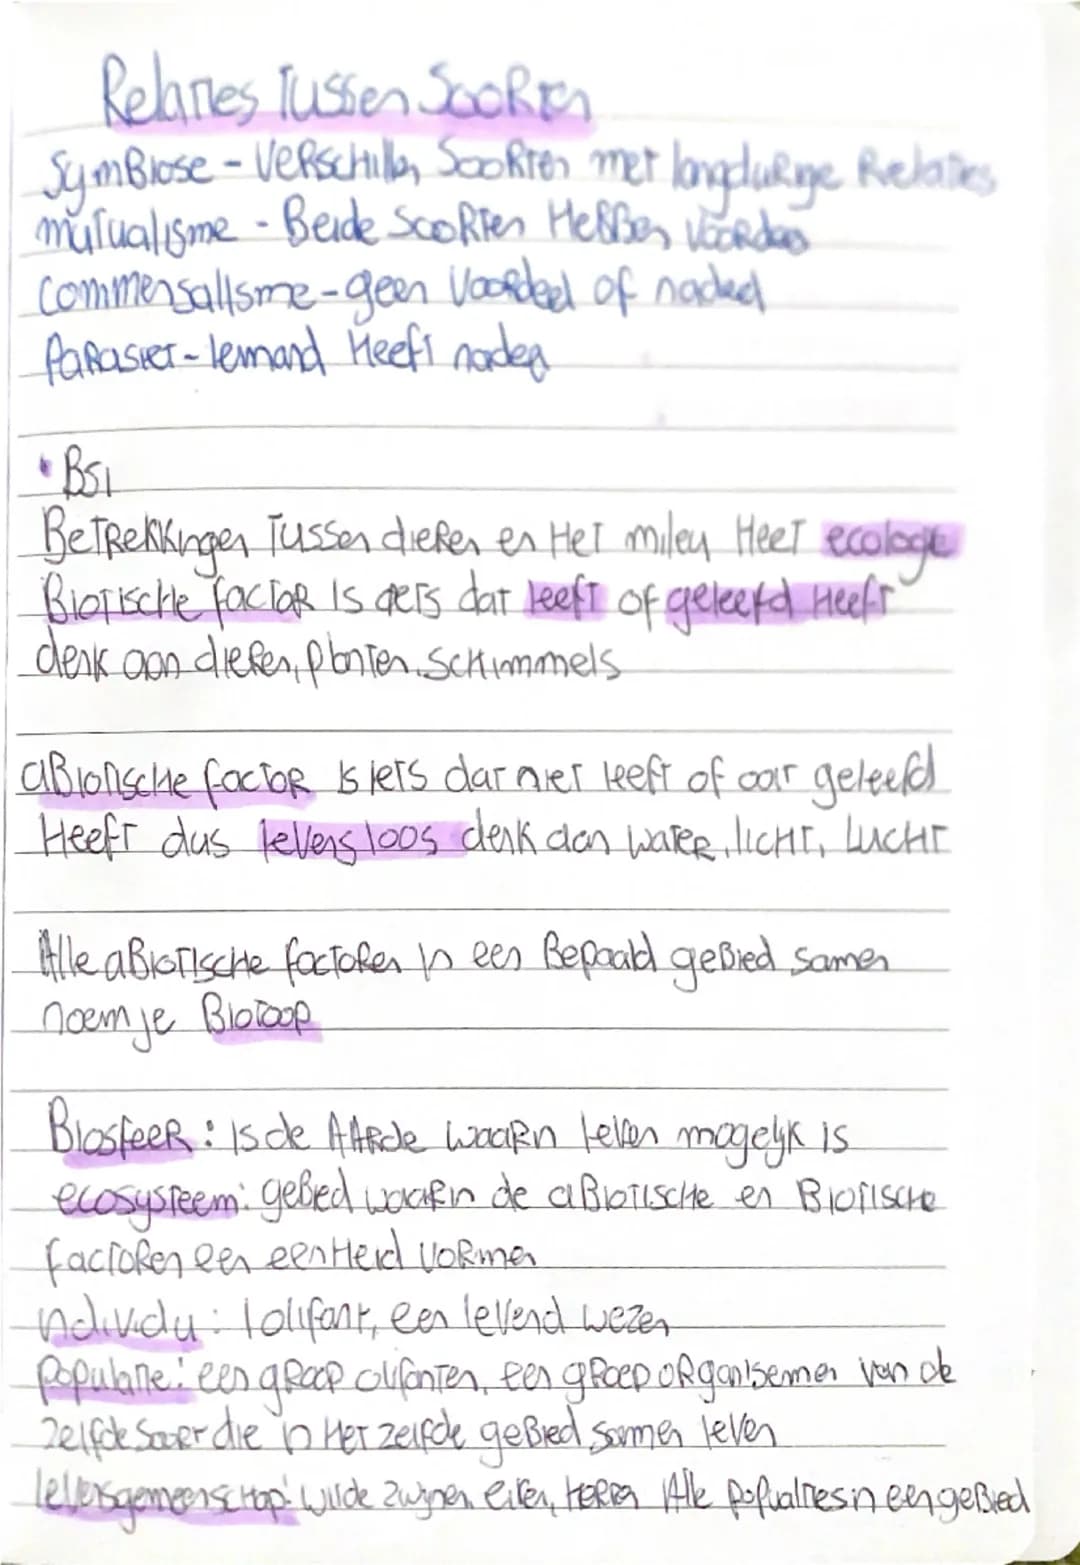 Relaties Tussen Soorten
Symbiose - Verschillen Soorten met langdurige Relaties
mutualisme - Beide Soorten Hebben voordeel
Commensallsme - geen Voordeel of nadeel
Parasiet - Iemand Heeft nadeel
• BS1
Betrekkingen Tussen dieren en Het mileu Heet ecologie
Biotische factor Is iets dat leeft of geleefd Heeft
denk aan dieren, planten, Schimmels
aBiotische factor Is iets dat niet leeft of ooit geleefd
Heeft dus levensloos denk aan water, licht, Lucht
Alle aBiotische factoren in een Bepaald geBied samen
noem je Biotoop
Biosfeer : Is de AARde waarin leven mogelyk is
ecosysteem: geBied waarin de aBiotische en Biotische
factoren een eenheid vormen
individu : 1 olifant, een levend wezen
Populatie: een groep olifanten, een groep organismen van de
zelfde Soort die in Het zelfde geBied samen leven
levensgemeenschap: wilde zwijnen, eiken, Herten Alle populaties in een geBied